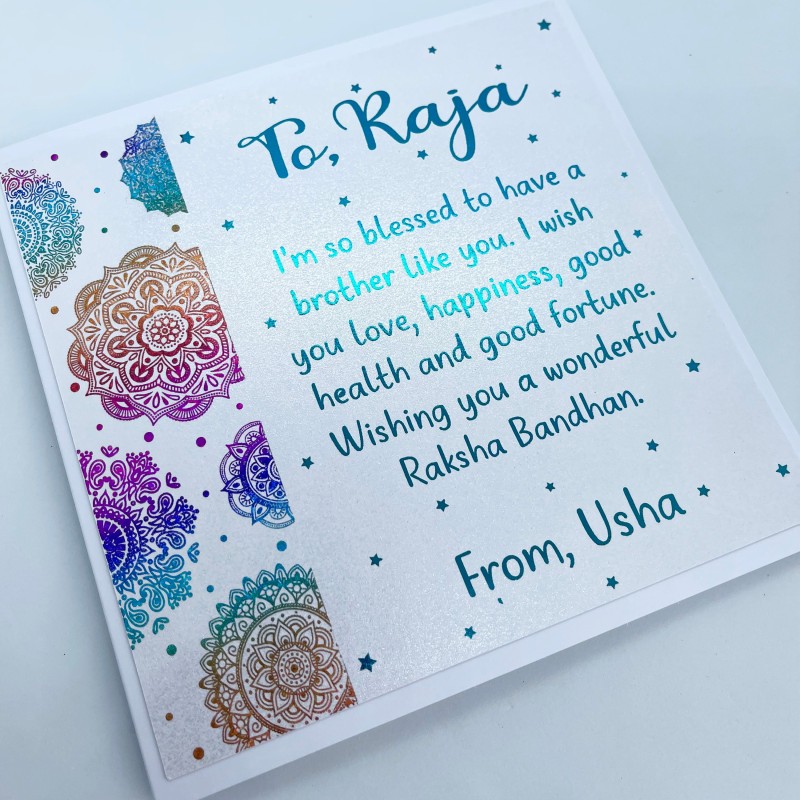 To, Raja
I'm so blessed to have a
brother like you. I wish
you love, happiness, good
health and good fortune.
Wishing you a wonderful
Raksha Bandhan.
From, Usha